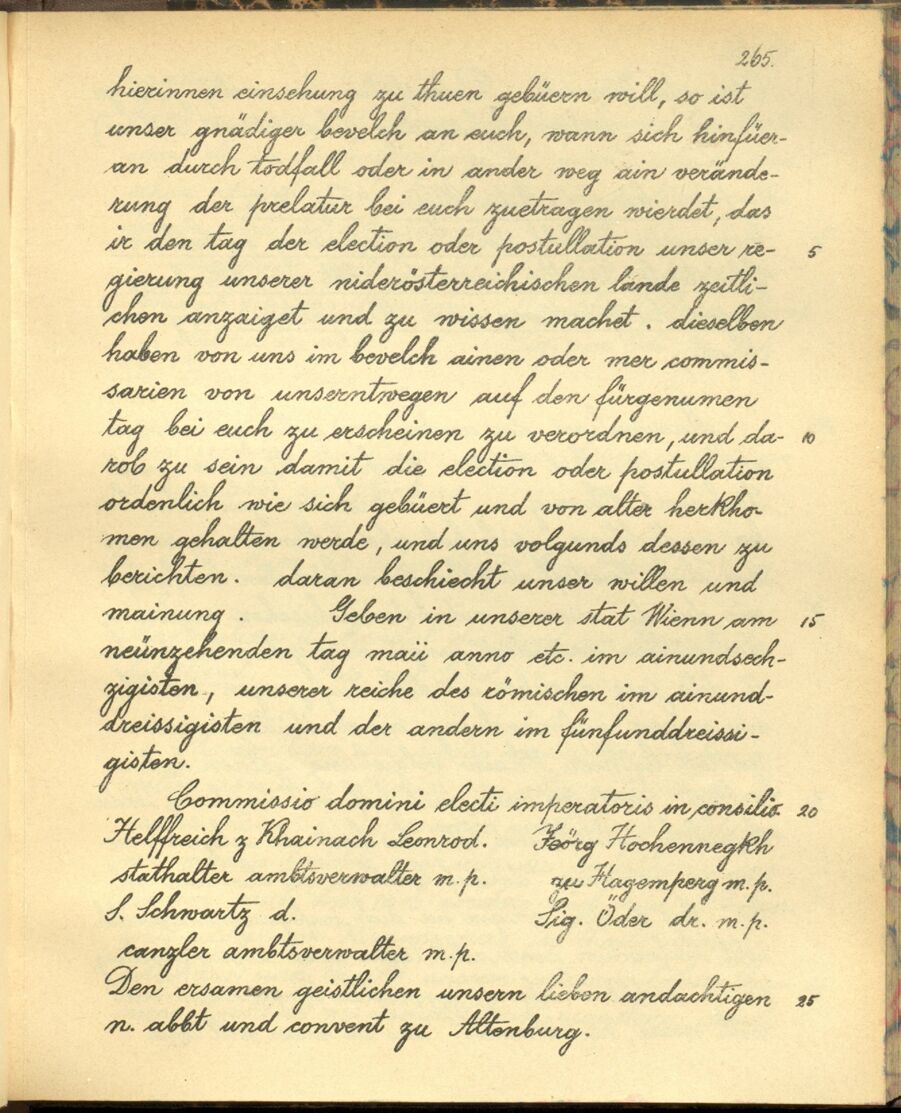 265.
hierinnen einsehung zu thuen gebüern will, so ist
unser gnädiger bevelch an euch, wann sich hinfüer-
an durch todfall oder in ander weg ain verände-
rung der prelatur bei euch zuetragen wierdet, das
ir den tag der election oder postullation unser re- 5
gierung unserer niderösterreichischen lande zeitli-
chen anzaiget und zu wissen machet. dieselben
haben von uns im bevelch ainen oder mer commis-
sarien von unserntwegen auf den fürgenumen
tag bei euch zu erscheinen zu verordnen, und da- 10
rob zu sein damit die election oder postullation
ordenlich wie sich gebüert und von alter herkho-
men gehalten werde, und uns volgunds dessen zu
berichten. daran beschiecht unser willen und
mainung. Geben in unserer stat Wienn am 15
neünzehenden tag maii anno etc. im ainundsech-
zigisten, unserer reiche des römischen im ainund-
dreissigisten und der andern im fünfunddreissi-
gisten.
Commissio domini electi imperatoris in consilio. 20
Helffreich z Khainach Leonrod. Jörg Hochenneg​kh
stathalter ambtsverwalter m.p. zu Hagemperg m.p.
S. Schwartz d. Sig. Öder dr. m.p.
canzler ambtsverwalter m.p.
Den ersamen geistlichen unsern lieben andachtigen 25
n. abbt und convent zu Altenburg.